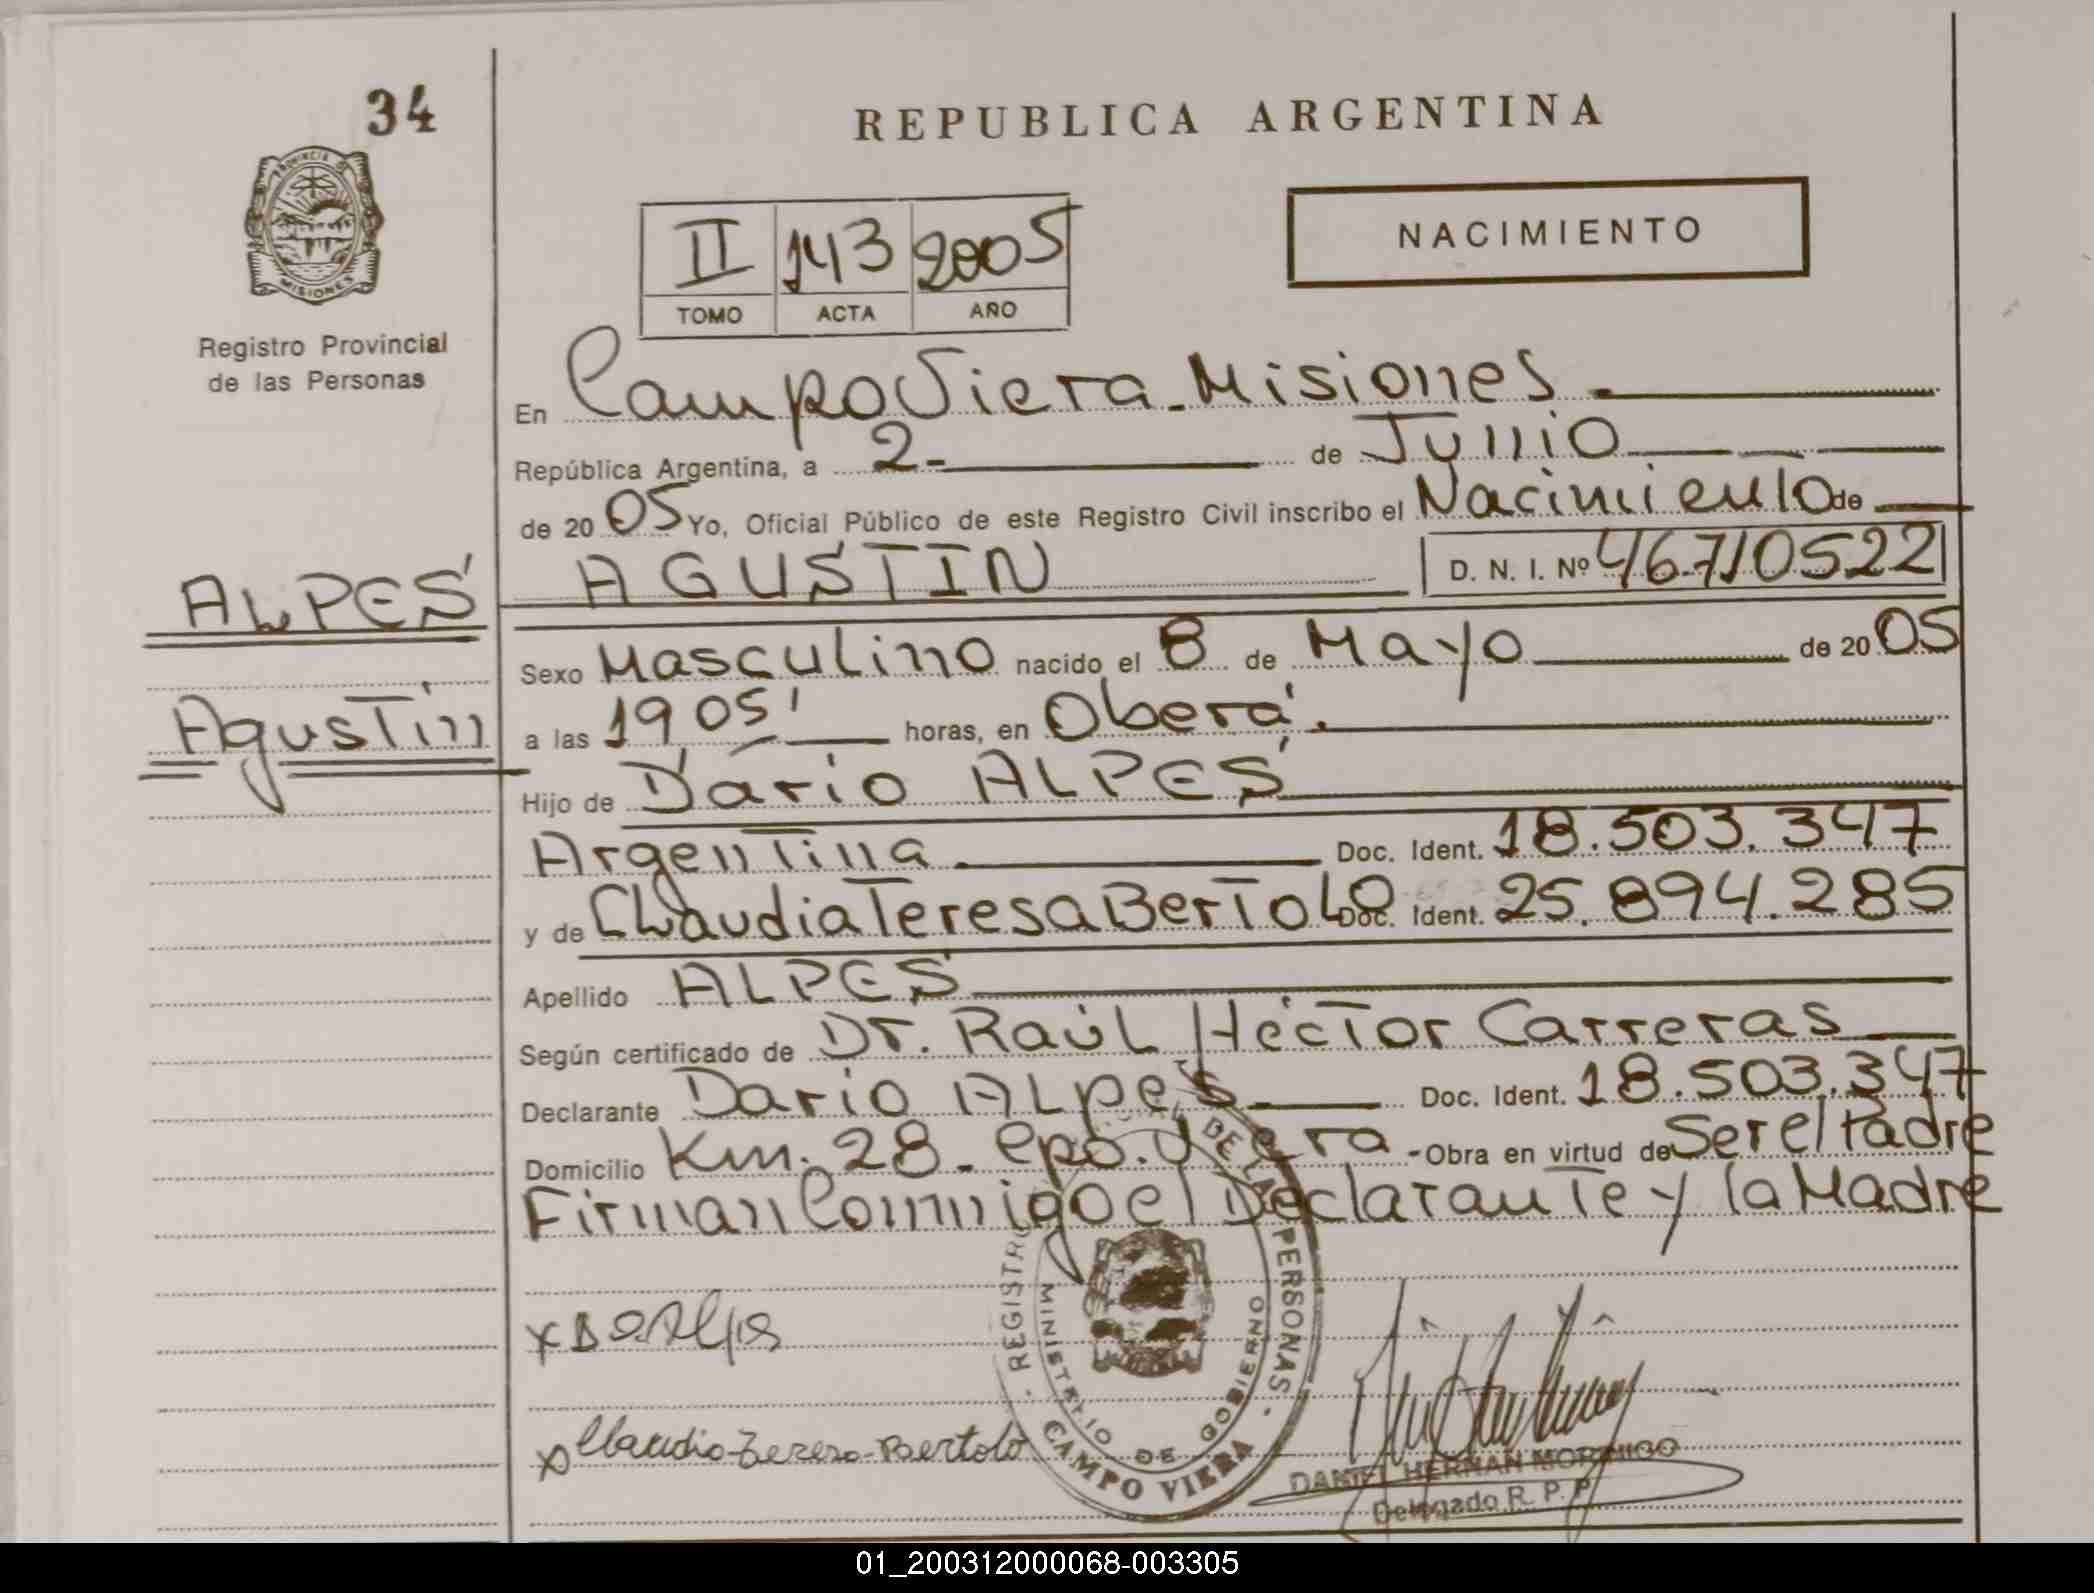 34
REPUBLICA ARGENTINA
PROVINCIA DE
MISIONES
NACIMIENTO
II 143 2005
TOMO ACTA AÑO
Registro Provincial
de las Personas
En Campo Viera-Misiones.
República Argentina, a 2- de Junio
de 2005 Yo, Oficial Público de este Registro Civil inscribo el Nacimiento de
ALPES
AGUSTIN D. N. I. Nº 46710522
Sexo Masculino nacido el 8 de Mayo de 2005
Agustin
a las 19 05' horas, en Oberá.
Hijo de Dario ALPES
Argentina. Doc. Ident. 18.503.347
y de Claudia Teresa Bertolo Doc. Ident. 25.894.285
Apellido ALPES
Según certificado de Dr. Raúl Héctor Carreras
Declarante Dario ALpes Doc. Ident. 18.503.347
Domicilio Km. 28- cpo. Viera - Obra en virtud de Ser el Padre
Firman Conmigo el Declarante y la Madre
REGISTRO DE LAS PERSONAS
MINISTERIO DE GOBIERNO
CAMPO VIERA
x Claudia Teresa Bertolo
DANIEL HERNAN MORINIGO
Delegado R. P. P.
01_200312000068-003305